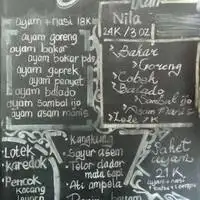 Ayam + nasi 18K
ayam goreng
ayam bakar
ayam bakar pds
ayam geprek
ayam penyet
ayam balado
ayam sambal ijo
ayam asam manis
Ikan
Nila
24K / 3 oz
> Bakar
> Goreng
> Cobek
> Balado
> Sambal ijo
> Asam manis
> Lele 21K
- Lotek
- Karedok
- Pencok
kacang
- Kangkung
- Sayur asem
- Telor dadar
mata sapi
- Ati ampela
Paket
ayam
21K